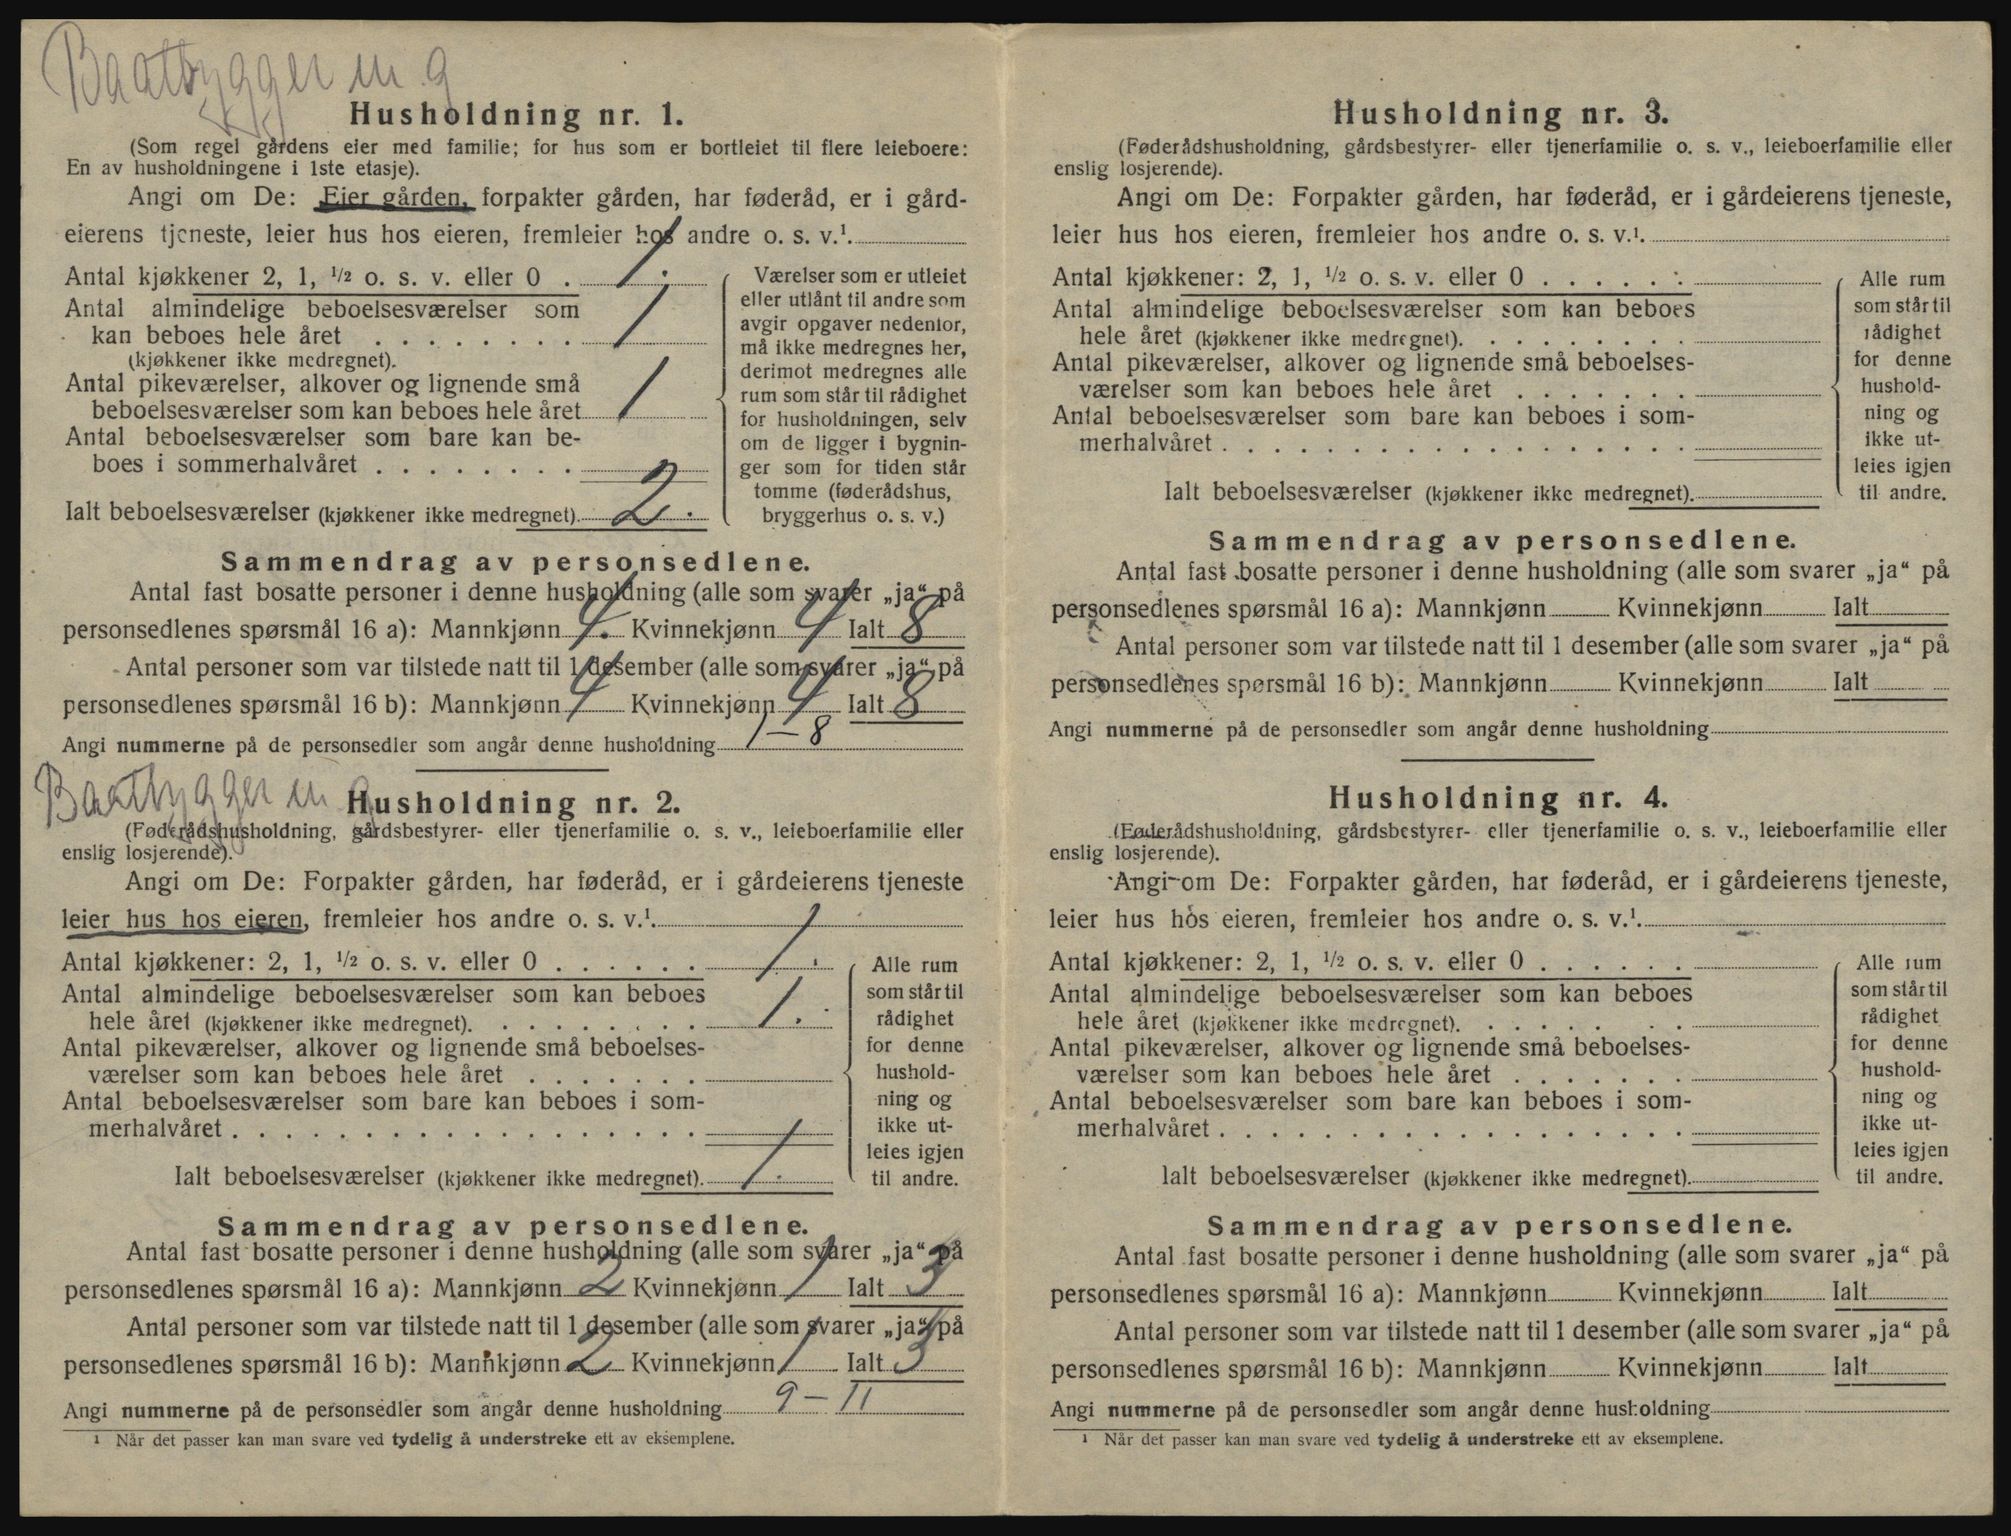 Baatbygger m. g
Husholdning nr. 1.
(Som regel gårdens eier med familie; for hus som er bortleiet til flere leieboere:
En av husholdningene i 1ste etasje).
Angi om De: Eier gården, forpakter gården, har føderåd, er i gård-
eierens tjeneste, leier hus hos eieren, fremleier hos andre o. s. v.¹.
Antal kjøkkener 2, 1, ½ o. s. v. eller 0 . 1.
Antal almindelige beboelsesværelser som
kan beboes hele året . . . . . . . . 1
(kjøkkener ikke medregnet).
Antal pikeværelser, alkover og lignende små
beboelsesværelser som kan beboes hele året 1
Antal beboelsesværelser som bare kan be-
boes i sommerhalvåret . . . . . . . .
Ialt beboelsesværelser (kjøkkener ikke medregnet). 2.
Værelser som er utleiet
eller utlånt til andre som
avgir opgaver nedenfor,
må ikke medregnes her,
derimot medregnes alle
rum som står til rådighet
for husholdningen, selv
om de ligger i bygnin-
ger som for tiden står
tomme (føderådshus,
bryggerhus o. s. v.)
Sammendrag av personsedlene.
Antal fast bosatte personer i denne husholdning (alle som svarer „ja“ på
personsedlenes spørsmål 16 a): Mannkjønn 4. Kvinnekjønn 4 Ialt 8
Antal personer som var tilstede natt til 1 desember (alle som svarer „ja“ på
personsedlenes spørsmål 16 b): Mannkjønn 4 Kvinnekjønn 4 Ialt 8
Angi nummerne på de personsedler som angår denne husholdning 1 – 8
Baatbygger m. g
Husholdning nr. 2.
(Føderådshusholdning, gårdsbestyrer- eller tjenerfamilie o. s. v., leieboerfamilie eller
enslig losjerende).
Angi om De: Forpakter gården, har føderåd, er i gårdeierens tjeneste
leier hus hos eieren, fremleier hos andre o. s. v.¹.
Antal kjøkkener: 2, 1, ½ o. s. v. eller 0 . . . . . . 1.
Antal almindelige beboelsesværelser som kan beboes
hele året (kjøkkener ikke medregnet). . . . . . . . . 1.
Antal pikeværelser, alkover og lignende små beboelses-
værelser som kan beboes hele året . . . . . . .
Antal beboelsesværelser som bare kan beboes i som-
merhalvåret . . . . . . . . . . . . . . . . . .
Ialt beboelsesværelser (kjøkkener ikke medregnet). 1.
Alle rum
som står til
rådighet
for denne
hushold-
ning og
ikke ut-
leies igjen
til andre.
Sammendrag av personsedlene.
Antal fast bosatte personer i denne husholdning (alle som svarer „ja“ på
personsedlenes spørsmål 16 a): Mannkjønn 2 Kvinnekjønn 1 Ialt 3
Antal personer som var tilstede natt til 1 desember (alle som svarer „ja“ på
personsedlenes spørsmål 16 b): Mannkjønn 2 Kvinnekjønn 1 Ialt 3
Angi nummerne på de personsedler som angår denne husholdning 9 – 11
¹ Når det passer kan man svare ved tydelig å understreke ett av eksemplene.
Husholdning nr. 3.
(Føderådshusholdning, gårdsbestyrer- eller tjenerfamilie o. s. v., leieboerfamilie eller
enslig losjerende).
Angi om De: Forpakter gården, har føderåd, er i gårdeierens tjeneste,
leier hus hos eieren, fremleier hos andre o. s. v.¹.
Antal kjøkkener: 2, 1, ½ o. s. v. eller 0 . . . . . .
Antal almindelige beboelsesværelser som kan beboes
hele året (kjøkkener ikke medregnet). . . . . . . . .
Antal pikeværelser, alkover og lignende små beboelses-
værelser som kan beboes hele året . . . . . . .
Antal beboelsesværelser som bare kan beboes i som-
merhalvåret . . . . . . . . . . . . . . . . . .
Ialt beboelsesværelser (kjøkkener ikke medregnet).
Alle rum
som står til
rådighet
for denne
hushold-
ning og
ikke ut-
leies igjen
til andre.
Sammendrag av personsedlene.
Antal fast bosatte personer i denne husholdning (alle som svarer „ja“ på
personsedlenes spørsmål 16 a): Mannkjønn Kvinnekjønn Ialt
Antal personer som var tilstede natt til 1 desember (alle som svarer „ja“ på
personsedlenes spørsmål 16 b): Mannkjønn Kvinnekjønn Ialt
Angi nummerne på de personsedler som angår denne husholdning
Husholdning nr. 4.
(Føderådshusholdning, gårdsbestyrer- eller tjenerfamilie o. s. v., leieboerfamilie eller
enslig losjerende).
Angi om De: Forpakter gården, har føderåd, er i gårdeierens tjeneste,
leier hus hos eieren, fremleier hos andre o. s. v.¹.
Antal kjøkkener: 2, 1, ½ o. s. v. eller 0 . . . . . .
Antal almindelige beboelsesværelser som kan beboes
hele året (kjøkkener ikke medregnet). . . . . . . .
Antal pikeværelser, alkover og lignende små beboelses-
værelser som kan beboes hele året . . . . . . .
Antal beboelsesværelser som bare kan beboes i som-
merhalvåret . . . . . . . . . . . . . . . . . .
Ialt beboelsesværelser (kjøkkener ikke medregnet).
Alle rum
som står til
rådighet
for denne
hushold-
ning og
ikke ut-
leies igjen
til andre.
Sammendrag av personsedlene.
Antal fast bosatte personer i denne husholdning (alle som svarer „ja“ på
personsedlenes spørsmål 16 a): Mannkjønn Kvinnekjønn Ialt
Antal personer som var tilstede natt til 1 desember (alle som svarer „ja“ på
personsedlenes spørsmål 16 b): Mannkjønn Kvinnekjønn Ialt
Angi nummerne på de personsedler som angår denne husholdning
¹ Når det passer kan man svare ved tydelig å understreke ett av eksemplene.